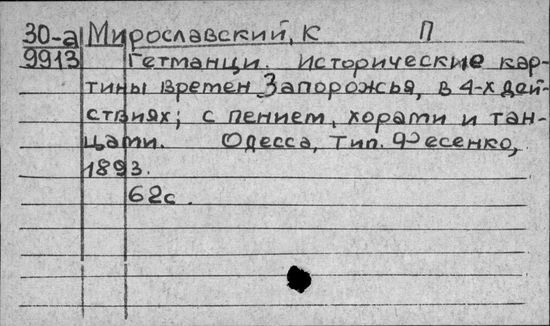 30-а Мирославский, К П
9913 Гетманци. Исторические кар-
тины времен Запорожья, в 4-х дей-
ствиях; с пением, хорами и тан-
цами. Одесса, тип. Фесенко,
1893.
62с.